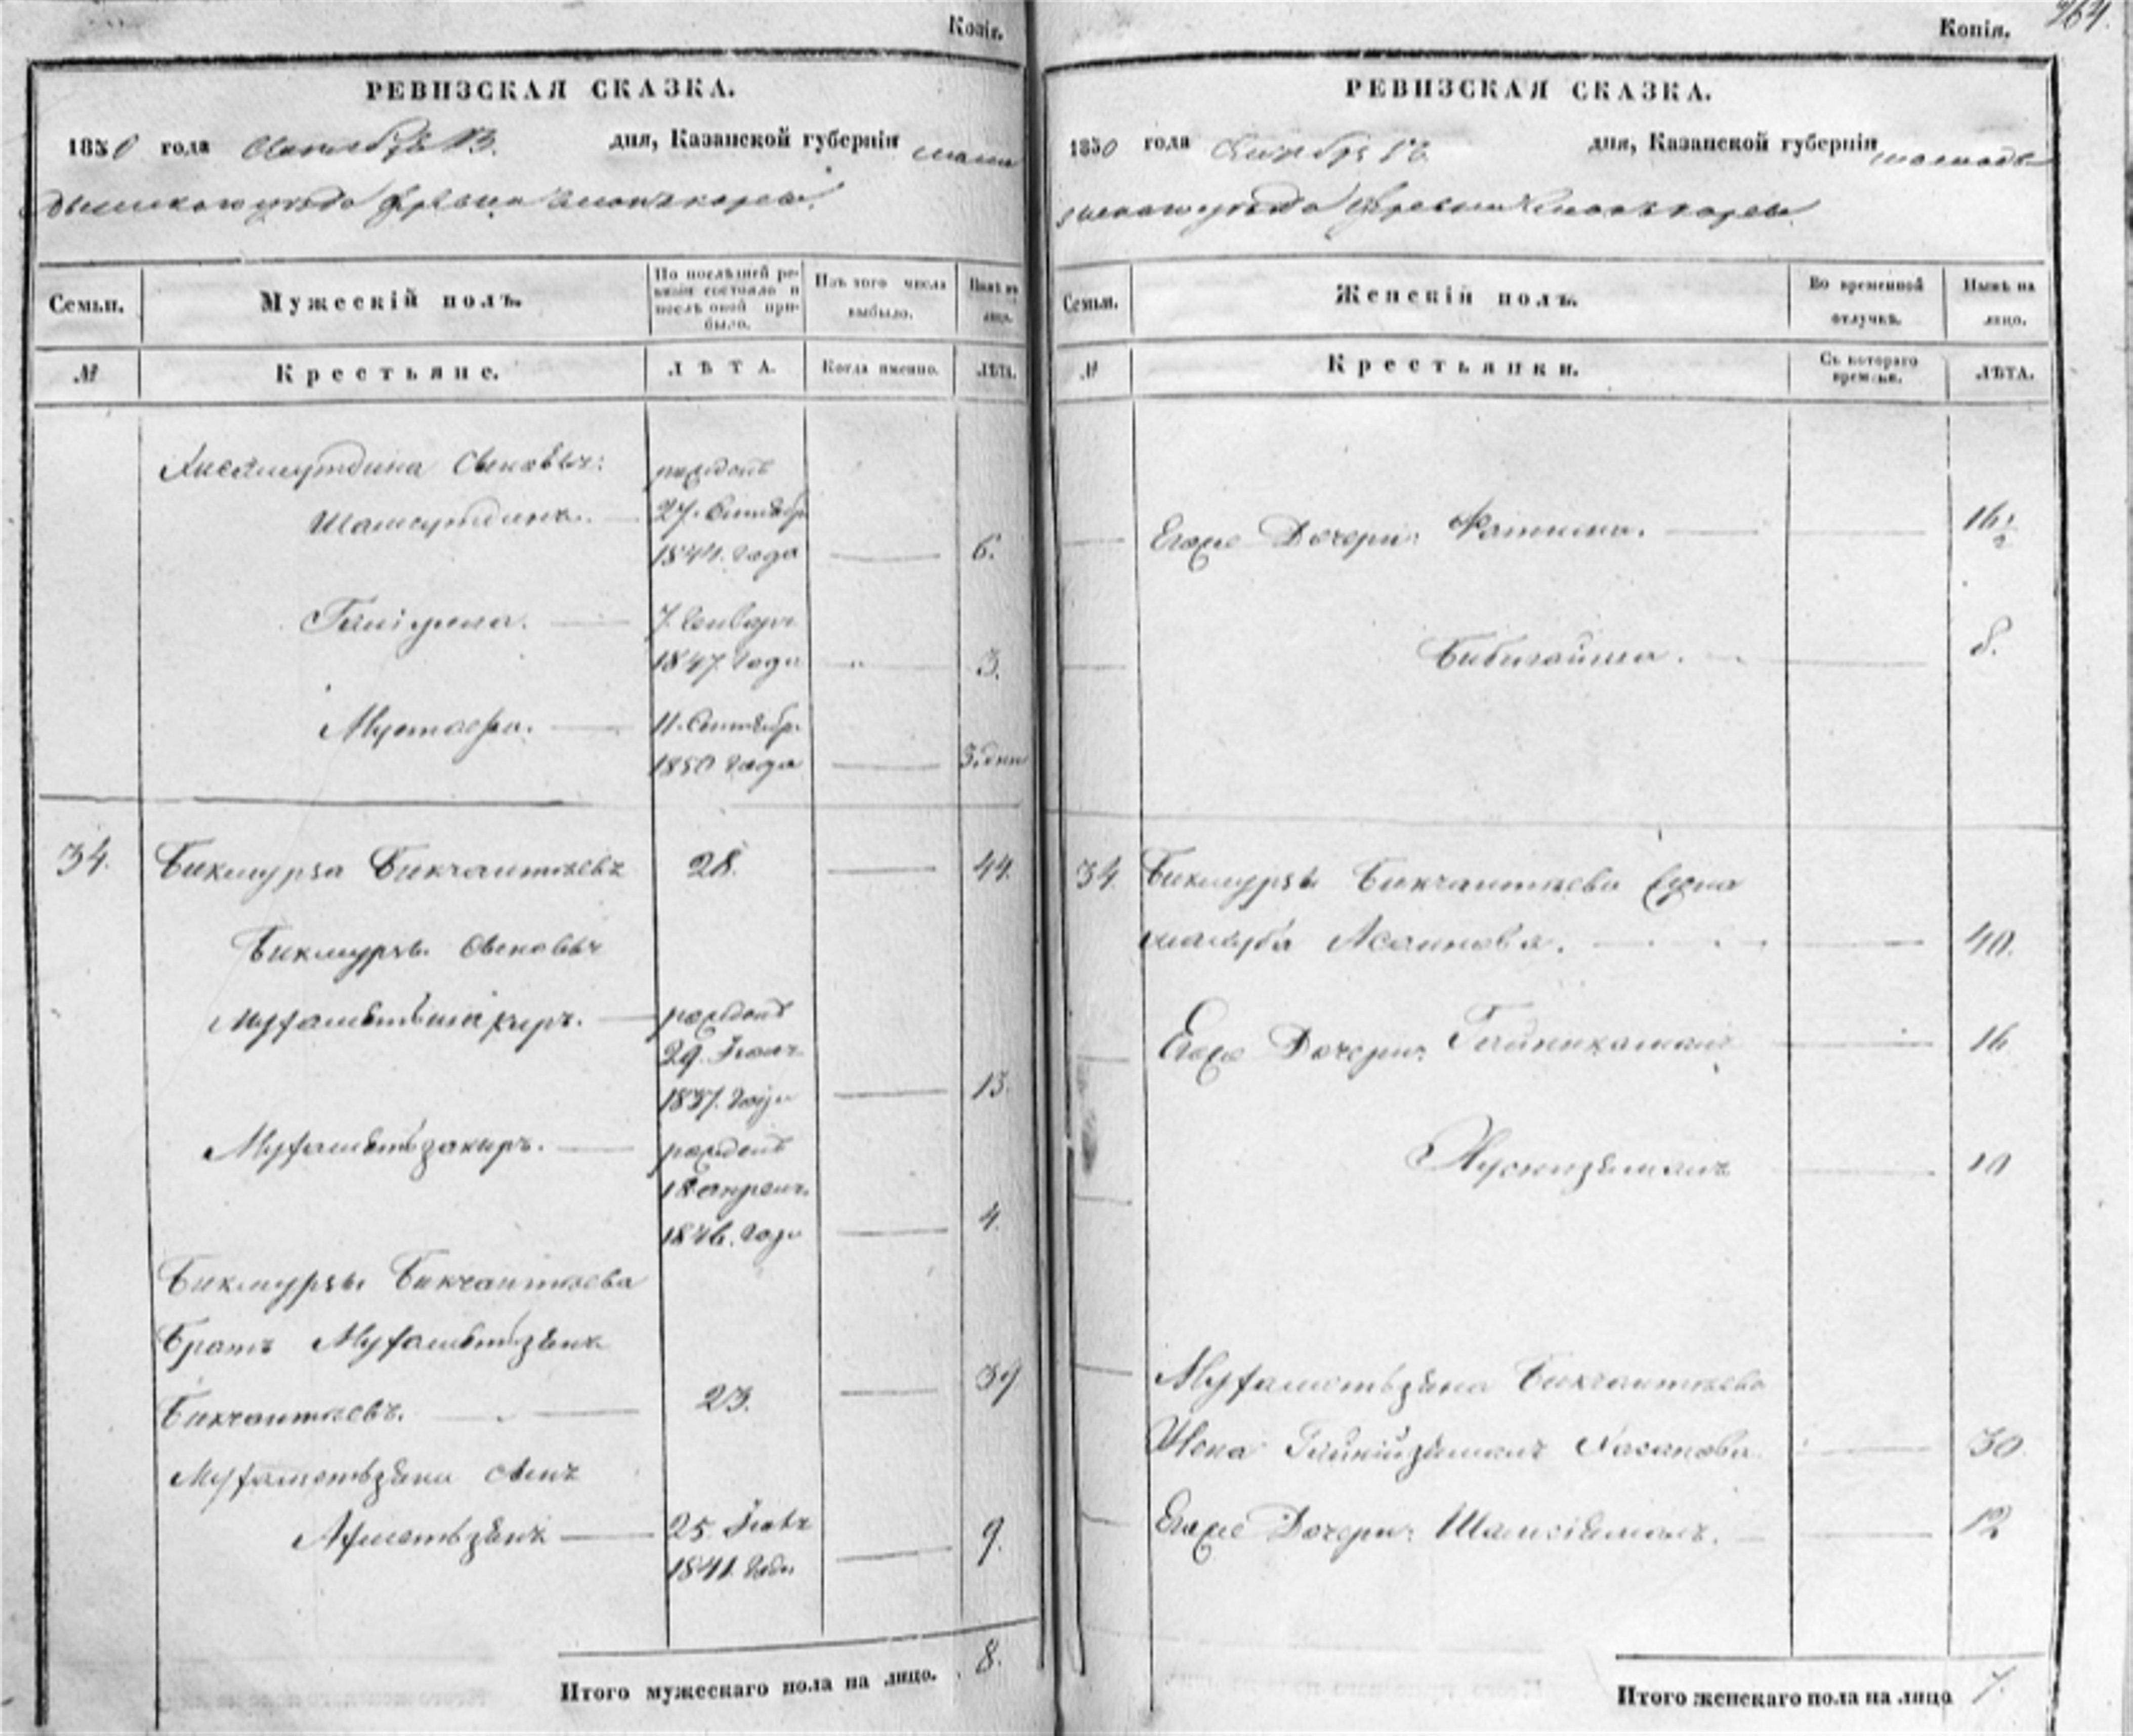 Копія.
РЕВИЗСКАЯ СКАЗКА.
1850 года Октября 13. дня, Казанской губерніи мама
дышскаго уѣзда деревни
Семьи.
Мужескій полъ.
По послѣдней ре-
визіи состояло и
послѣ оной при-
было.
Изъ того числа
выбыло.
Нынѣ на
лицо.
№
Крестьяне.
ЛѢТА.
Когда именно.
ЛѢТА.
Хисямутдина Сыновья:
рожденъ
Шамсутдинъ.
27. Сентября
1844. года
6.
7. Генваря
1847. года
3.
Мустафа.
11. Сентября
1850 года
3. дни
34.
Бикмурза Бикчантаевъ
28.
44.
Бикмурзы Сыновья
Мухаметьшакиръ.
рожденъ
29. Іюля
1837. года
13.
Мухаметьзакиръ.
рожденъ
18 апреля
1846. года
4.
Бикмурзы Бикчантаева
Братъ Мухаметьзянъ
Бикчантаевъ.
23.
39
Мухаметьзяна Сынъ
Ахметьзянъ
25
1841. года
9.
Итого мужескаго пола на лицо.
8.
Копія.
264.
РЕВИЗСКАЯ СКАЗКА.
1850 года дня, Казанской губерніи мамады
шскаго уѣзда деревни
Семьи.
Женскій полъ.
Во временной
отлучкѣ.
Нынѣ на
лицо.
№
Крестьянки.
Съ котораго
времени.
ЛѢТА.
Егоже Дочери: Фатима.
16 1/2
Бибигайша.
8.
34.
Бикмурзы Бикчантаева Жена
Асанова.
40.
Егоже Дочери:
16
10
Мухаметьзяна Бикчантаева
Жена Хасанова
30.
Егоже Дочери: Шамсіямалъ.
12
Итого женскаго пола на лицо
7.